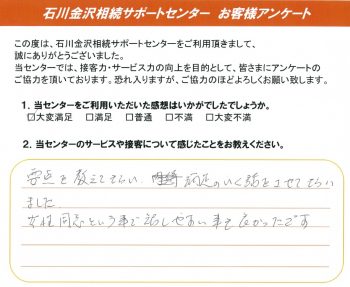 石川金沢相続サポートセンター お客様アンケート
この度は、石川金沢相続サポートセンターをご利用頂きまして、
誠にありがとうございました。
当センターでは、接客力・サービス力の向上を目的として、皆さまにアンケートの
ご協力を頂いております。恐れ入りますが、ご協力のほどよろしくお願い致します。
1. 当センターをご利用いただいた感想はいかがでしたでしょうか。
☑大変満足 □満足 □普通 □不満 □大変不満
2. 当センターのサービスや接客について感じたことをお教えください。
要点を教えてもらい、納得のいく話をさせてもらい
ました。
女性同志という事で話しやすい事も良かったです